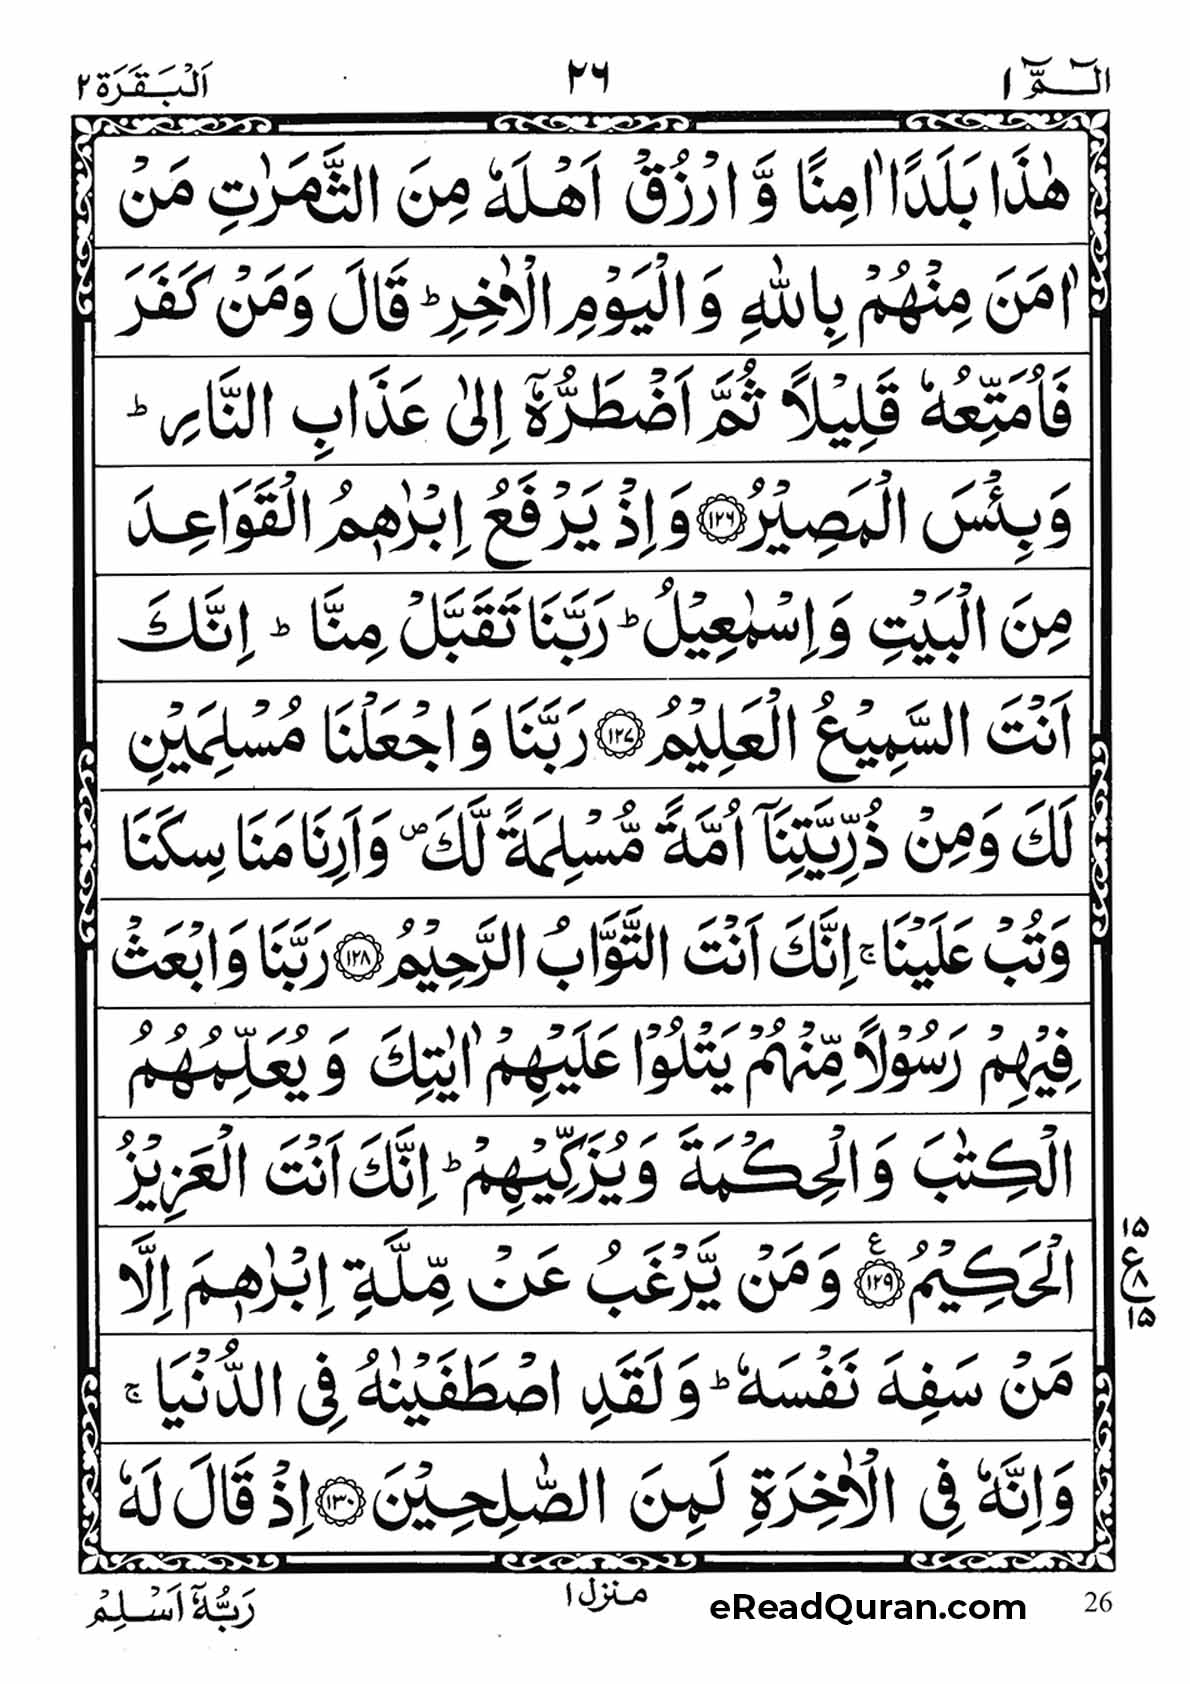 الٓـمّٓ ۱
۲۶
اَلْبَقَرَة ۲
هٰذَا بَلَدًا اٰمِنًا وَّ ارْزُقْ اَهْلَهٗ مِنَ الثَّمَرٰتِ مَنْ
اٰمَنَ مِنْهُمْ بِاللّٰهِ وَ الْيَوْمِ الْاٰخِرِ ؕ قَالَ وَمَنْ كَفَرَ
فَاُمَتِّعُهٗ قَلِيْلًا ثُمَّ اَضْطَرُّهٗۤ اِلٰى عَذَابِ النَّارِ ؕ
وَبِئْسَ الْمَصِيْرُ ﴿۱۲۶﴾ وَاِذْ يَرْفَعُ اِبْرٰهٖمُ الْقَوَاعِدَ
مِنَ الْبَيْتِ وَاِسْمٰعِيْلُ ؕ رَبَّنَا تَقَبَّلْ مِنَّا ؕ اِنَّكَ
اَنْتَ السَّمِيْعُ الْعَلِيْمُ ﴿۱۲۷﴾ رَبَّنَا وَاجْعَلْنَا مُسْلِمَيْنِ
لَكَ وَمِنْ ذُرِّيَّتِنَاۤ اُمَّةً مُّسْلِمَةً لَّكَ ۪ وَاَرِنَا مَنَاسِكَنَا
وَتُبْ عَلَيْنَا ۚ اِنَّكَ اَنْتَ التَّوَّابُ الرَّحِيْمُ ﴿۱۲۸﴾ رَبَّنَا وَابْعَثْ
فِيْهِمْ رَسُوْلًا مِّنْهُمْ يَتْلُوْا عَلَيْهِمْ اٰيٰتِكَ وَيُعَلِّمُهُمُ
الْكِتٰبَ وَالْحِكْمَةَ وَيُزَكِّيْهِمْ ؕ اِنَّكَ اَنْتَ الْعَزِيْزُ
الْحَكِيْمُ ﴿۱۲۹﴾ ع وَمَنْ يَّرْغَبُ عَنْ مِّلَّةِ اِبْرٰهٖمَ اِلَّا
۱۵
ع ۸
۱۵
مَنْ سَفِهَ نَفْسَهٗ ؕ وَلَقَدِ اصْطَفَيْنٰهُ فِى الدُّنْيَا ۚ
وَاِنَّهٗ فِى الْاٰخِرَةِ لَمِنَ الصّٰلِحِيْنَ ﴿۱۳۰﴾ اِذْ قَالَ لَهٗ
رَبُّهٗۤ اَسْلِمْ
منزل ۱
eReadQuran.com
26